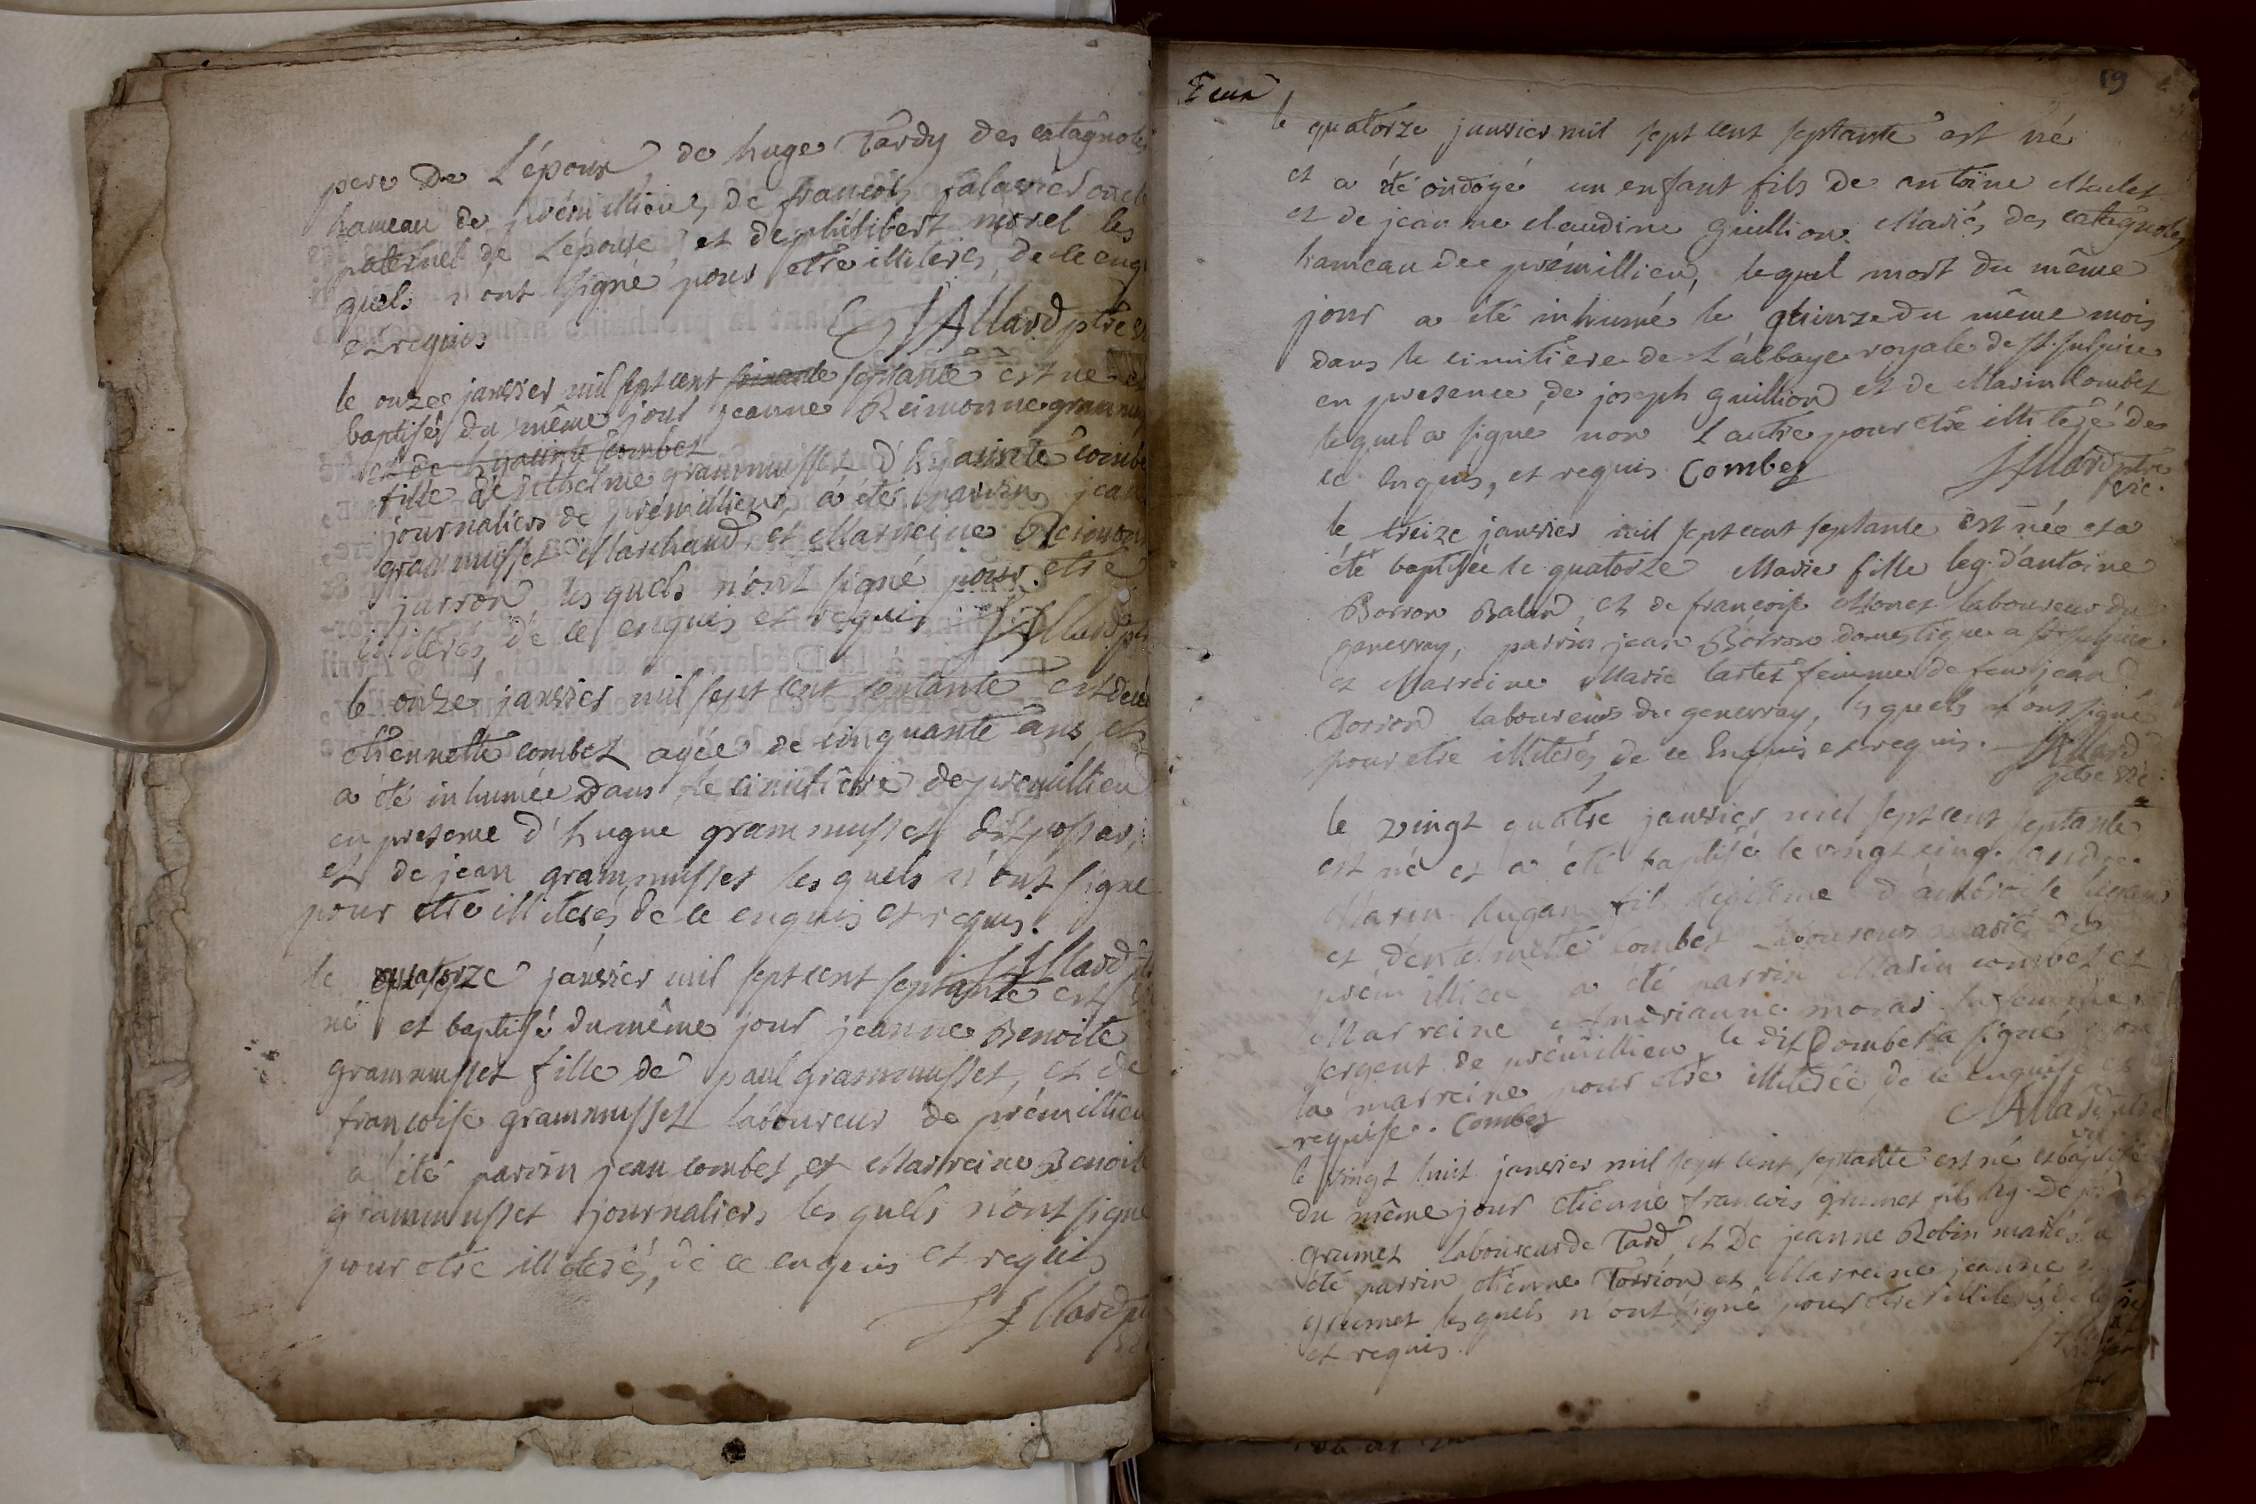 pere de L'époux, de huge Tardy des catagnoles
hameau de prémillieu, de francois falavier oncle
paternel de L'épouse, et de philibert morel les
quels n'ont signé pour etre illiterés, de ce enqu
et requis
J Allard ptre
le onze janvier mil sept cent soixante septante est né et
baptisée du même jour jeanne Reimonne grammusset
et de hyacinte combet
fille d'Anthelme grammusset d'hyacinte combe
journaliers de prémillieu, a été parrin jean
grammusset Marchand, et Marreine Reimon
jarron, les quels n'ont signé pour etre
illiterés, de ce enquis et requis J Allard ptre
le onze janvier mil sept cent septante est decé
etiennette combet agée de cinquante ans, et
a été inhumée dans le cimitiere de premillieu
en presence d'hugue grammusset dit possar,
et de jean grammusset les quels n'ont signe
pour etre illiterés, de ce enquis et requis.
J Allard ptre
le quatorze janvier mil sept cent septante est
né et baptisé du même jour jeanne Benoite
grammusset fille de paul grammusset, et de
françoise grammusset laboureur de prémillieu
a été parrin jean combet, et Marreine Benoite
grammusset journaliers les quels n'ont signe
pour etre illiterés, de ce enquis et requis
J Allard ptre
19
le quatorze janvier mil sept cent septante est né
et a été ondoyé un enfant fils de antoine Machet
et de jeanne claudine guillion Mariés des catagnoles
hameau de prémillieu, lequel mort du même
jour a été inhumé le quinze du même mois
dans le cimitiere de L'abbaye royale de st. sulpice
en presence de joseph guillion et de Marin Combet
lequel a signé non L'autre pour etre illiteré de
ce enquis, et requis Combet J Allard ptre
vic.
le treize janvier mil sept cent septante est née et a
été baptisée le quatorze Marie fille leg. d'antoine
Borron Balan, et de françoise Monet laboureur du
genevray, parrin jean Borron domestique a st sulpice
et Marreine Marie cartet femme de feu jean
Borron laboureurs du genevray, les quels n'ont signé
pour etre illiterés, de ce enquis et requis. J Allard
ptre vic:
le vingt quatre janvier mil sept cent septante
est né et a été baptisé le vingt cinq
Marin lugan fils legitime d'ambroise lugan
et d'entelmette combet laboureurs mariés de
prémillieu a été parrin Marin combet et
Marreine Andrianne moras
sergent de prémillieu le dit Combet a signé non
la marreine pour etre illiterée, de ce enquise et
requise. Combet J Allard ptre
vic
le vingt huit janvier mil sept cent septante est né et baptisé
du même jour etienne francois grumet fils leg. de
grumet laboureur de Tard, et De jeanne Robin mariés a
été parrin etienne Torrion et Marreine jeanne
grumet les quels n'ont signé pour etre illiterés de ce
et requis.